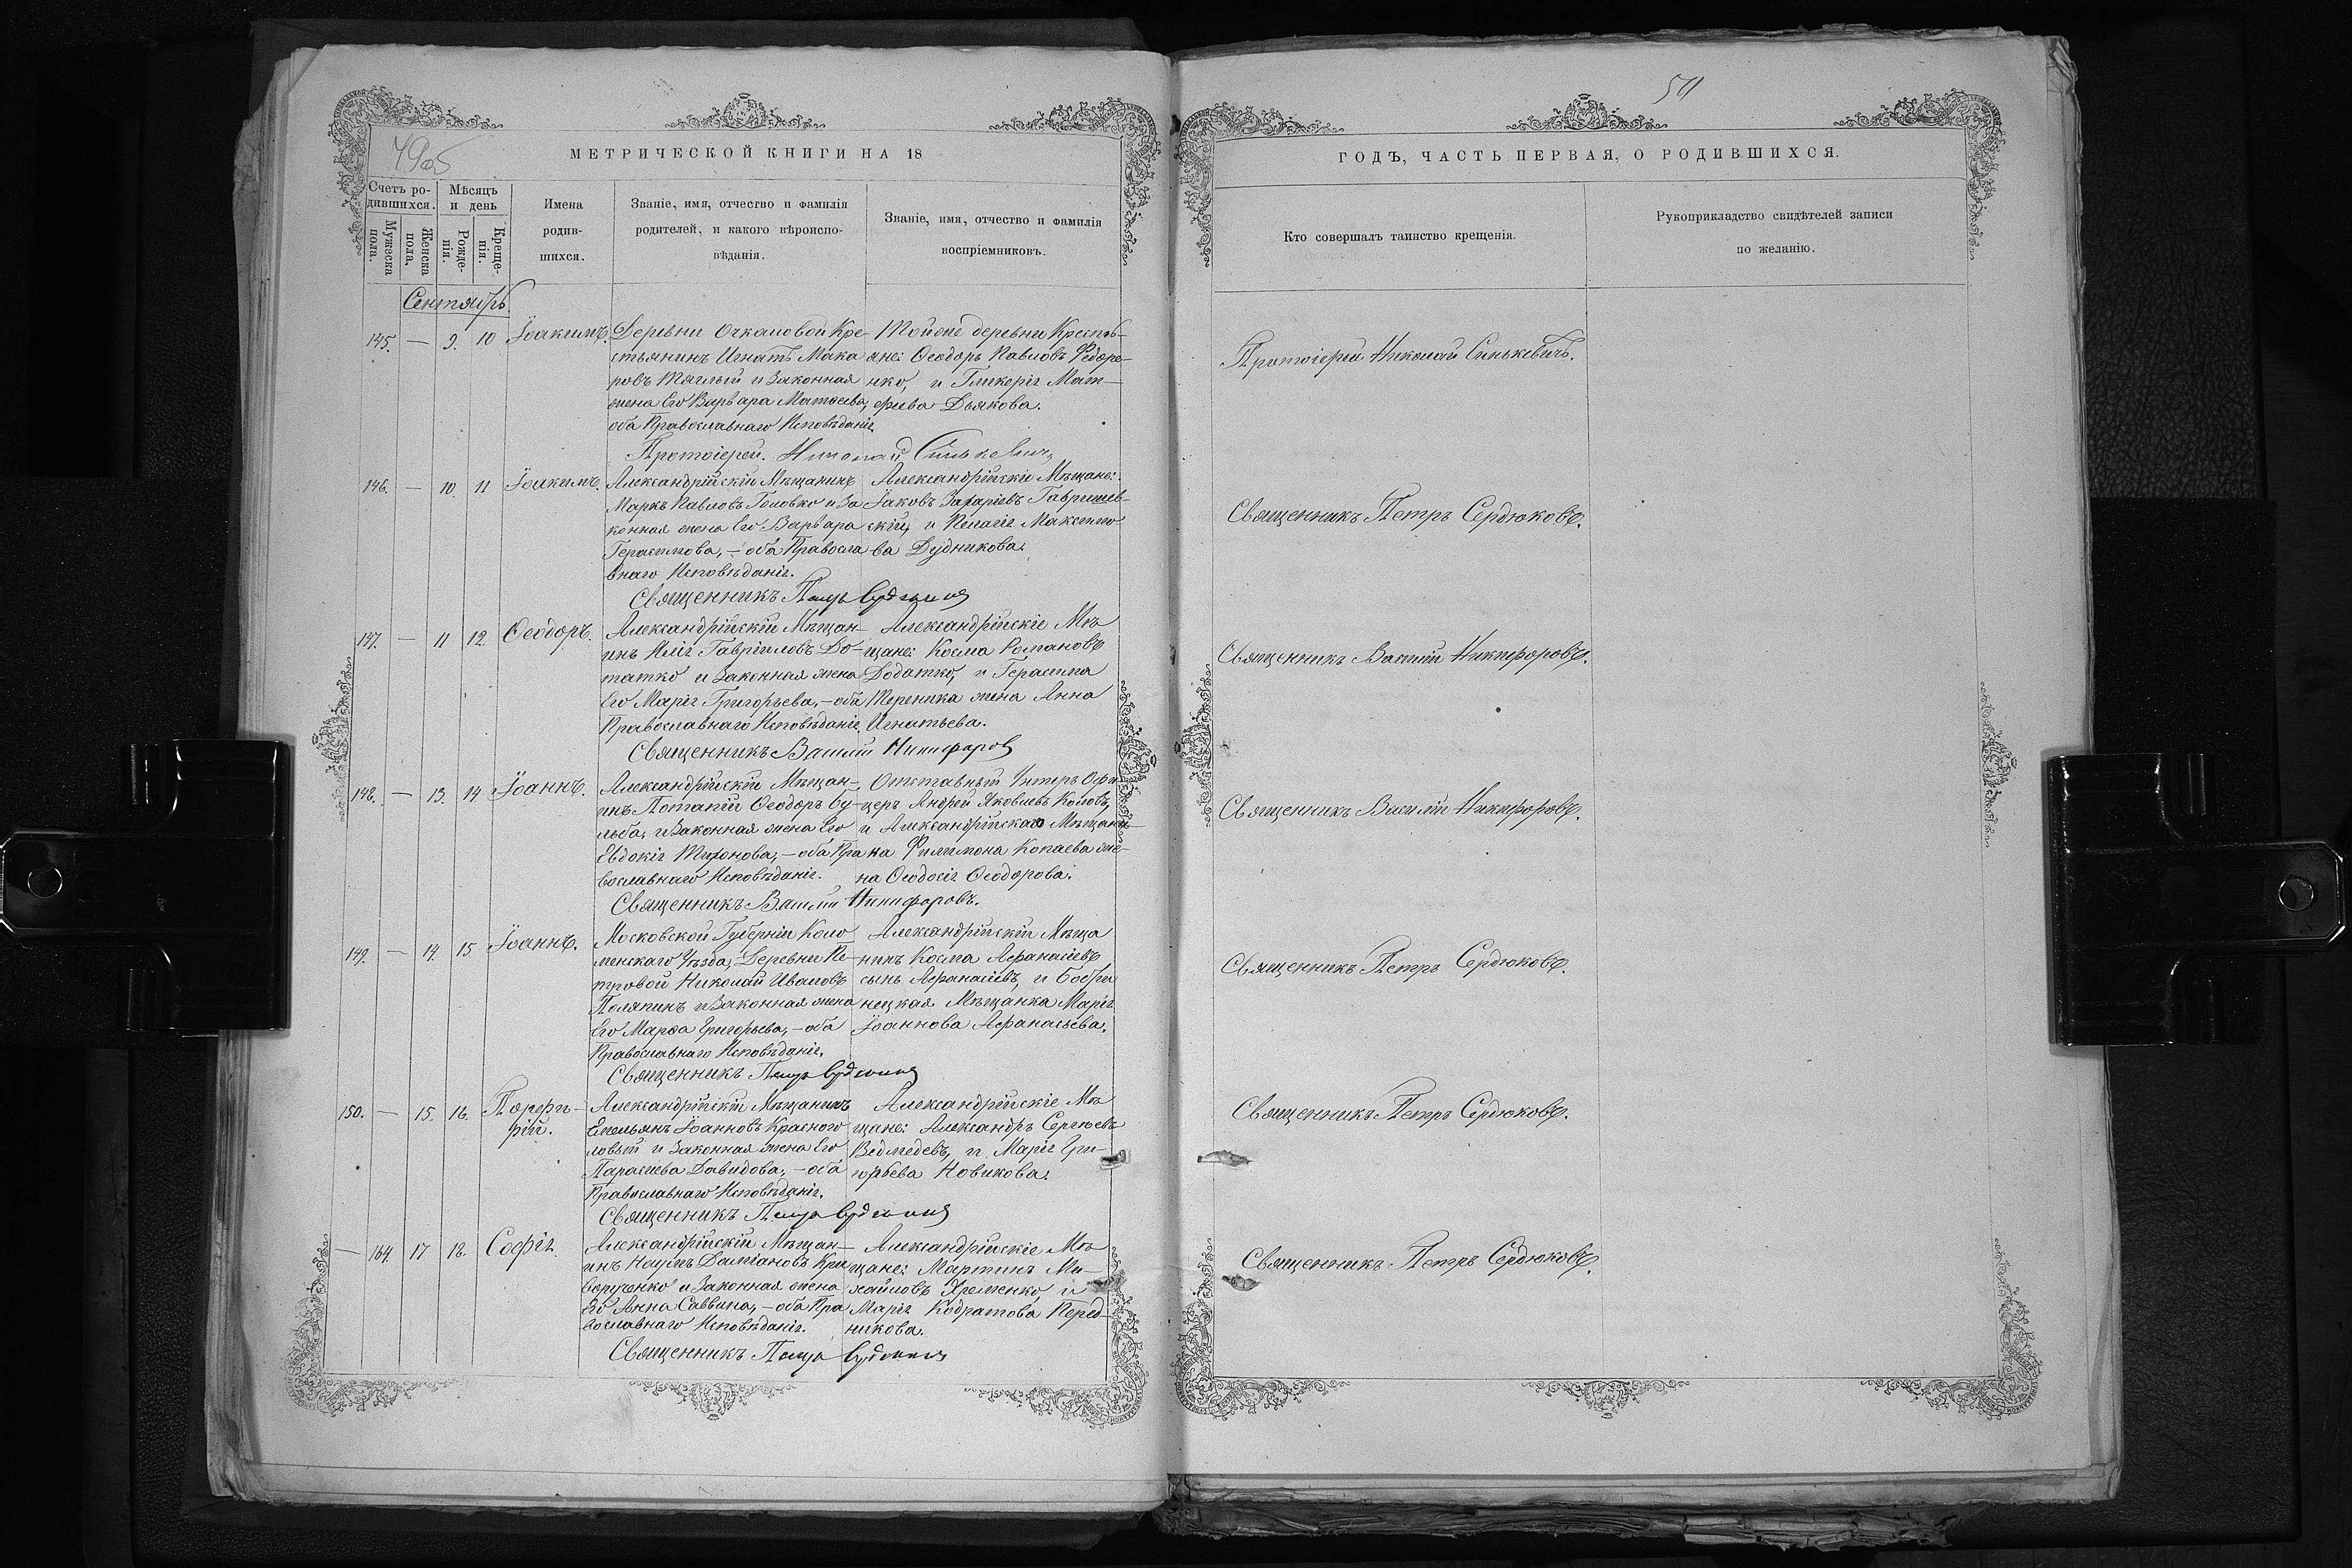 49об
МЕТРИЧЕСКОЙ КНИГИ НА 18
Счетъ ро-
дившихся.
Мужеска
пола.
Женска
пола.
Мѣсяцъ
и день
Рожде-
нія.
Креще-
нія.
Имена
родив-
шихся.
Званіе, имя, отчество и фамилія
родителей, и какого вѣроиспо-
вѣданія.
Званіе, имя, отчество и фамилія
воспріемниковъ.
Сентябрь.
145. — 9. 10 Іоакимъ.
Деревни Очкаловой Кре-
стьянинъ Игнатъ Мака
ровъ Тяглый и Законная
жена Его Варвара Матѳеева,
оба Православнаго Исповѣданія
Тойже деревни Крестья-
яне: Ѳеодоръ Павловъ Федоре-
нко, и Гликерія Мат-
фіева Дьякова.
Протоіерей Николай Синькевичъ
146. — 10. 11 Іоакимъ.
Александрійскій Мѣщанинъ
Маркъ Павловъ Головко и За
конная жена Его Варвара
Герасимова, — оба Правосла
внаго Исповѣданія.
Александрійскіе Мѣщане:
Іаковъ Захаріевъ Гавришев-
скій, и Пелагія Максимо
ва Дудникова.
Священникъ Петръ Сердюковъ
147. — 11 12. Ѳеодоръ.
Александрійскій Мѣщан-
инъ Илія Гавріиловъ До-
татко и Законная жена
Его Марія Григорьева, — оба
Православнаго Исповѣданія
Александрійскіе Мѣ
щане: Косма Романовъ
Додатко, и Герасима
Тереника жена Анна
Игнатьева.
Священникъ Василій Никифоровъ
148. — 13. 14 Іоаннъ.
Александрійскій Мѣщан-
инъ Потапій Ѳеодоръ Су-
льба, и Законная жена Его
Евдокія Тихонова, — оба Пра
вославнаго Исповѣданія.
Отставный Унтеръ Офи
церъ Андрей Яковлевъ Котовъ,
и Александрійскаго Мѣщани-
на Филимона Копаева же-
на Ѳеодосія Ѳеодорова.
Священникъ Василій Никифоровъ.
149. — 14. 15 Іоаннъ.
Московской Губерніи Коло
менскаго Уѣзда, Деревни Пе-
тровой Николай Ивановъ
Поляпинъ и Законная жена
Его Марѳа Григорьева, — оба
Православнаго Исповѣданія.
Александрійскій Мѣща
нинъ Косма Аѳанасіевъ
сынъ Аѳанасіевъ, и Бобри
нецкая Мѣщанка Марія
Іоаннова Аѳанасьева.
Священникъ Петръ Сердюковъ
150. — 15. 16. Порфи-
рій.
Александрійскій Мѣщанинъ
Емельянъ Іоанновъ Красного
ловый и Законная жена Его
Параскева Давидова, — оба
Православнаго Исповѣданія.
Александрійскіе Мѣ
щане: Александръ Сергѣевъ
Ведмедевъ, и Марія Гри-
горьева Новикова.
Священникъ Петръ Сердюковъ
— 164. 17 18. Софія.
Александрійскій Мѣщан-
инъ Наумъ Даміановъ Кри
ворученко и Законная жена
Его Анна Саввина, — оба Пра
вославнаго Исповѣданія.
Александрійскіе Мѣ
щане: Мартинъ Ми-
хайловъ Яременко, и
Марія Кодратова Перед-
никова.
Священникъ Петръ Сердюковъ
50
ГОДЪ, ЧАСТЬ ПЕРВАЯ, О РОДИВШИХСЯ.
Кто совершалъ таинство крещенія.
Рукоприкладство свидѣтелей записи
по желанію.
Протоіерей Николай Синькевичъ.
Священникъ Петръ Сердюковъ.
Священникъ Василій Никифоровъ.
Священникъ Василій Никифоровъ.
Священникъ Петръ Сердюковъ.
Священникъ Петръ Сердюковъ.
Священникъ Петръ Сердюковъ.